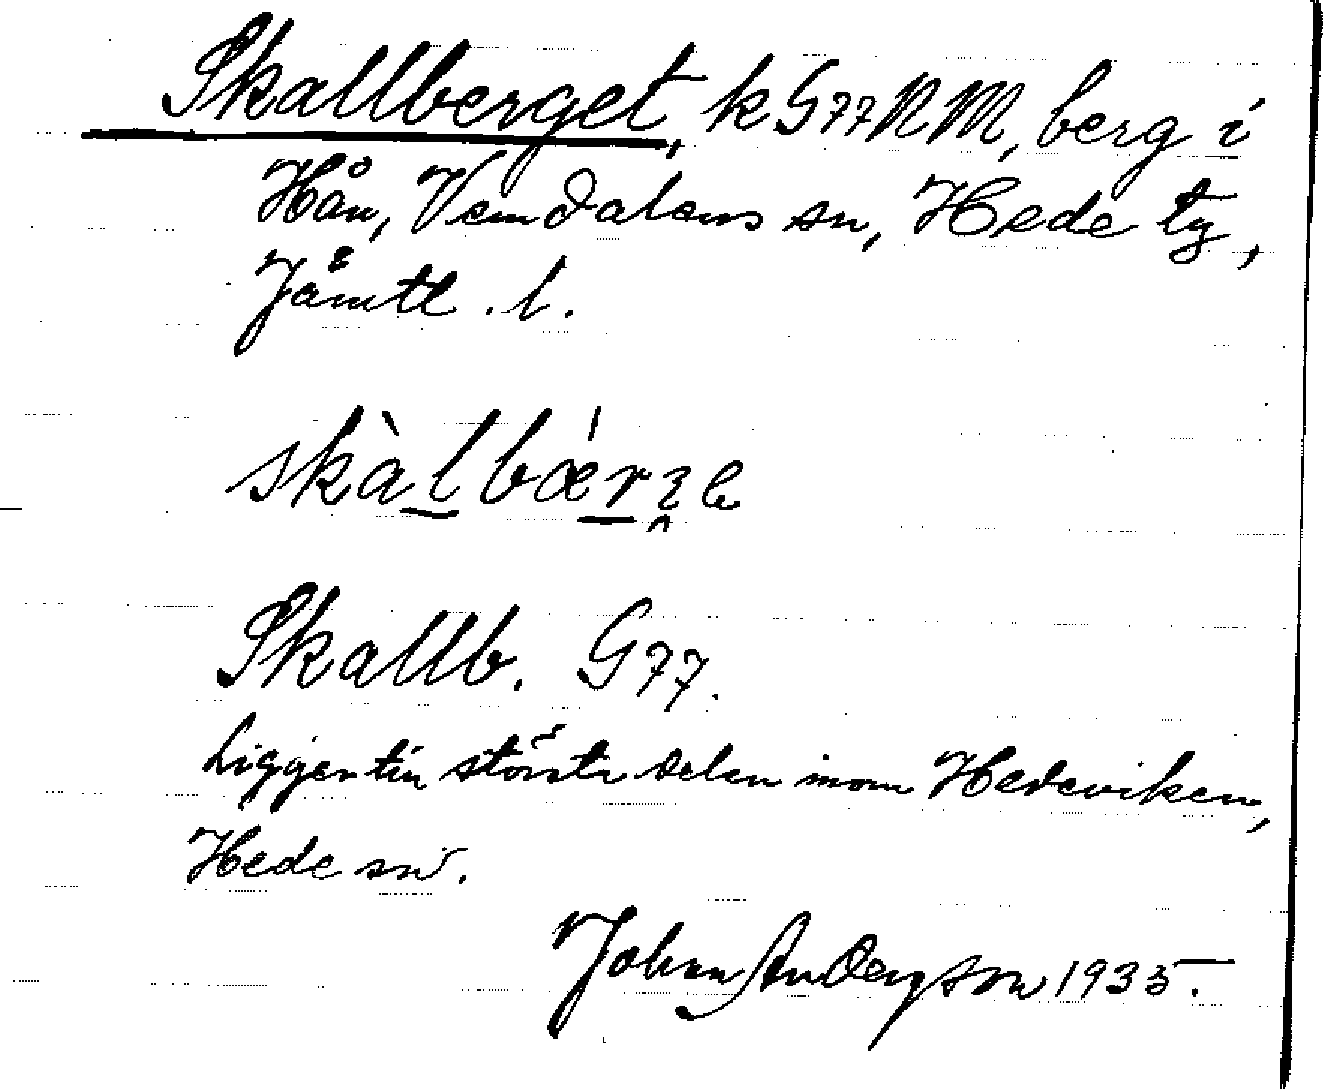 Skallberget, k G77 NM, berg i
Hån, Vemdalens sn, Hede tg,
Jämtl. l.
skàlbær
Skallb. G77.
Ligger till största delen inom Hedeviken,
Hede sn.
Johan Anderson 1935.